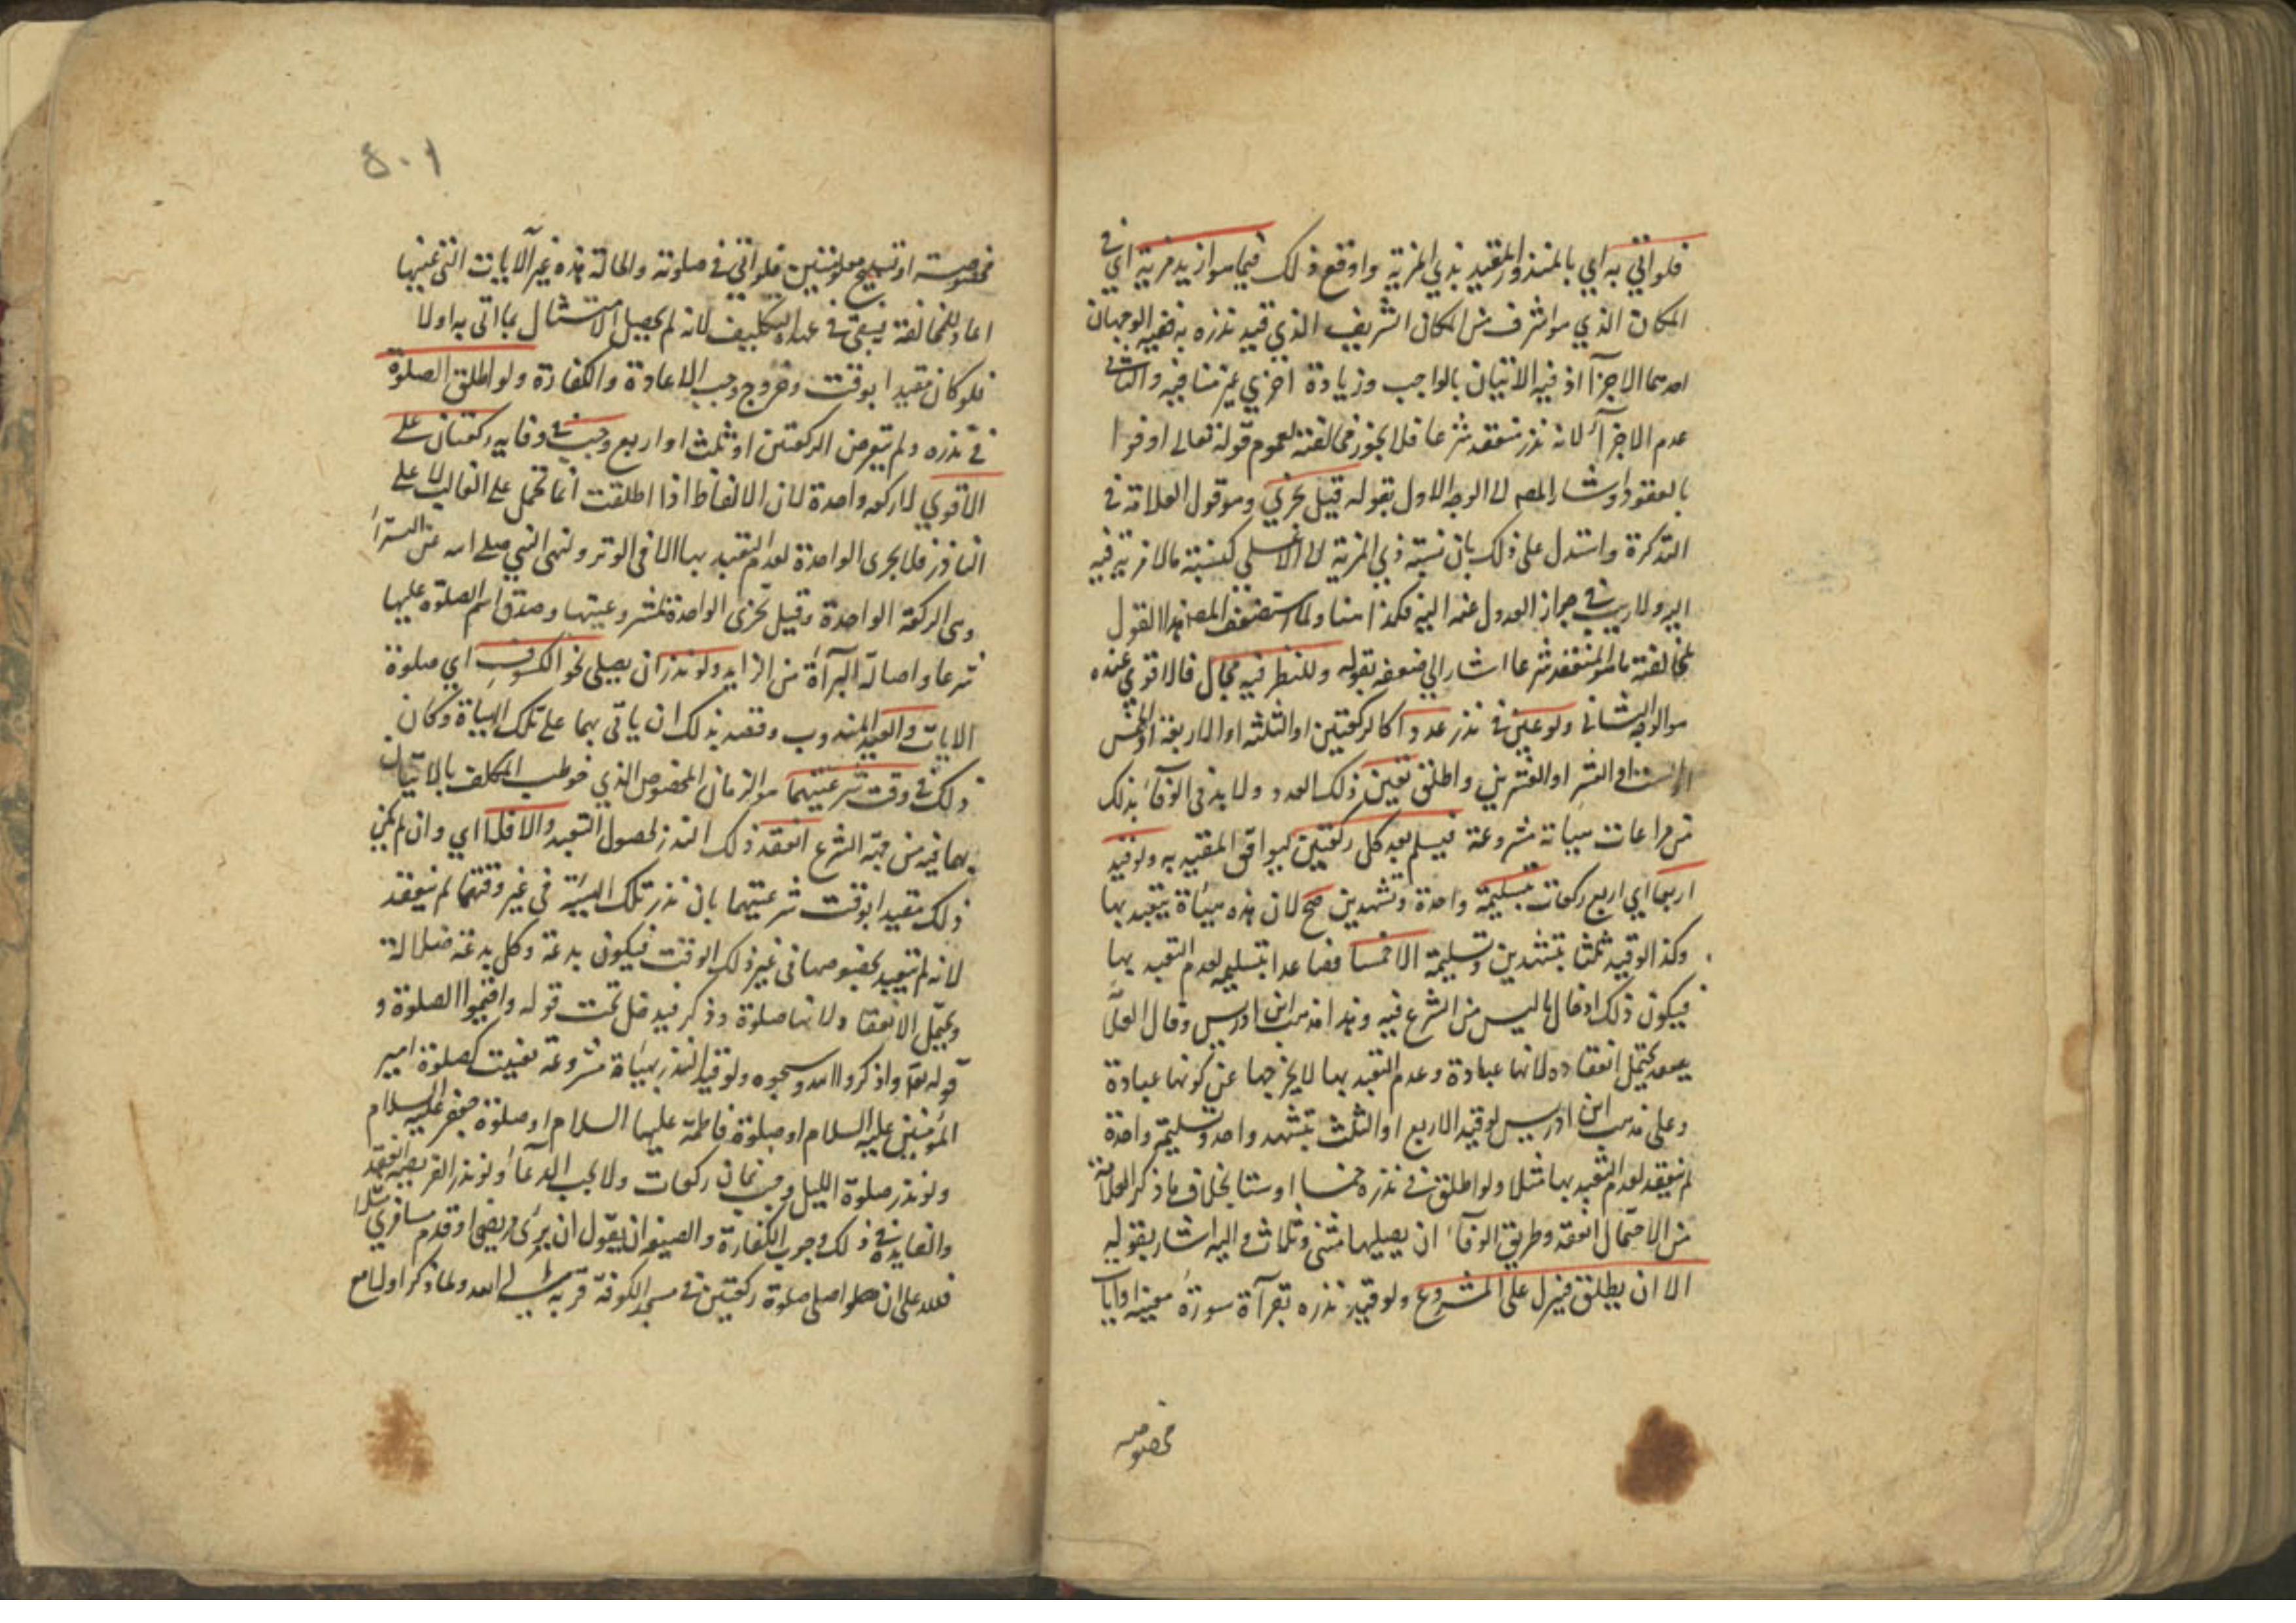 فلو اتي به اي بالمنذور المقيد بذي المزية واوقع ذلك فيما هو ازيد مزية اي في
المكان الذي هو اشرف من المكان الشريف الذي قيد نذره به ففيه الوجهان
احدهما الاجزآ اذ فيه الاتيان بالواجب وزيادة اخري غير منافيه والثاني
عدم الاجزآء لانه نذر منعقد شرعا فلا يجوز مخالفته لعموم قوله تعالى اوفوا
بالعقود واشار المصم الى الوجه الاول بقوله قيل يجزي وهو قول العلامة في
التذكرة واستدل على ذلك بان نسبة ذي المزية الى الاعلى كنسبة ما لا مزية فيه
اليه ولا ريب في جواز العدول عنه اليه فكذا هنا ولما استضعف المصم هذا القول
لمخالفته ما هو المنعقد شرعا اشار الي ضعفه بقوله وللنظر فيه مجال فالاقوي عنده
هو الوجه الثاني ولو عين في نذر عددا كالركعتين او الثلثه او الاربعة او الخمس
او الست او العشر او العشرين واطلق تعين ذلك العدد ولا بد في الوفآء بذلك
من مراعات هيأة مشروعة فيسلم بعد كل ركعتين ليوافق المتعبد به ولو قيد
اربعا اي اربع ركعات بتسليمة واحدة وتشهدين صح لان هذه هيأة يتعبد بها
وكذا لو قيد ثلثا بتشهدين وتسليمة لا خمسا فصاعدا بتسليمه لعدم التعبد بها
فيكون ذلك ادخال ما ليس من الشرع فيه وهذا مذهب ابن ادريس وقال العلا
بعد يحتمل انعقاده لانها عبادة وعدم التعبد بها لا يخرجها عن كونها عبادة
وعلى مذهب ابن ادريس لو قيد الاربع او الثلث بتشهد واحد وتسليمة واحدة
لم ينعقد لعدم التعبد بها مثلا ولو اطلق في نذره خمسا او ستا بخلاف ما ذكر العلامة
من الاحتمال انعقد وطريق الوفآء ان يصليها مثنى وثلاث واليه اشار بقوله
الا ان يطلق فينزل على المشروع ولو قيد نذره بقرآة سورة معينه او ايات
مخصوصه
٥٠١
مخصوصة او تسبيح معلوم تعين فلو اتي في صلوته والحالة هذه بغير الايات التي عينها
اعاد للمخالفة فيبقى في عهدة التكليف لانه لم يحصل الامتثال بما اتى به اولا
فلو كان مقيدا بوقت وخروج وجب الاعادة والكفارة ولو اطلق الصلوة
في نذره ولم يتعرض الركعتين او ثلث او اربع وجب في وفايه ركعتان على
الاقوي لا ركعه واحدة لان الالفاظ اذا اطلقت انما تحمل على الغالب لا على
النادر فلا يجزى الواحدة لعدم التعبد بها الا في الوتر ولنهى النبي صلى الله عن البترآ
وهى الركعة الواحدة وقيل تجزى الواحدة لمشروعيتها وصدق اسم الصلوة عليها
شرعا واصالة البرآة من الزايد ولو نذر ان يصلى نحو الكسوف اي صلوة
الايات والعيد المندوب وقصد بذلك ان ياتى بهما على تلك الهيأة وكان
ذلك في وقت شرعيتهما هو الزمان المخصوص الذي خوطب المكلف بالاتيان
بهما فيه من قبل الشرع انعقد ذلك النذر لحصول التعبد والا فلا اي وان لم يكن
ذلك مقيدا بوقت شرعيتهما بان نذر تلك الهيئة في غير وقتهما لم ينعقد
لانه لم يتعبد بخصوصها في غير ذلك الوقت فيكون بدعة وكل بدعة ضلالة
ويحتمل الانعقاد لانها صلوة وذكر فيدخل تحت قوله واقيموا الصلوة و
قوله تعا واذكروا الله وسبحوه ولو قيد النذر بهيأة مشروعة تعينت كصلوة امير
المؤمنين عليه السلام او صلوة فاطمة عليها السلام او صلوة جعفر عليه السلام
ولو نذر صلوة الليل وجب ثمان ركعات ولا يجب الدعآء ولو نذر الفريضه انعقد
والفايده في ذلك وجوب الكفارة والصيغه ان يقول ان برئ مريضى او قدم مسافري مثلا
فلله على ان اصلى صلوة ركعتين في مسجد الكوفة قربة الى الله ولما ذكر اولا مع